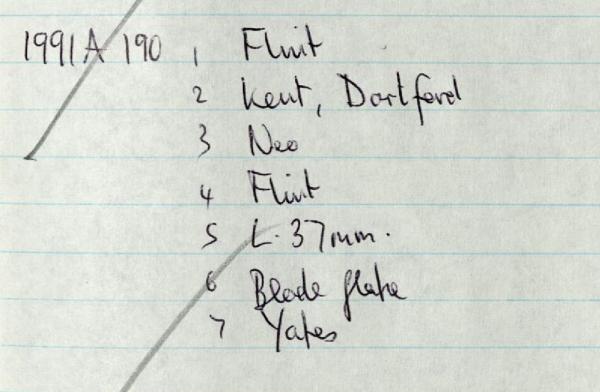 1991A 190 1 Flint
2 Kent, Dartford
3 Neo
4 Flint
5 L. 37mm.
6 Blade flake
7 Yates